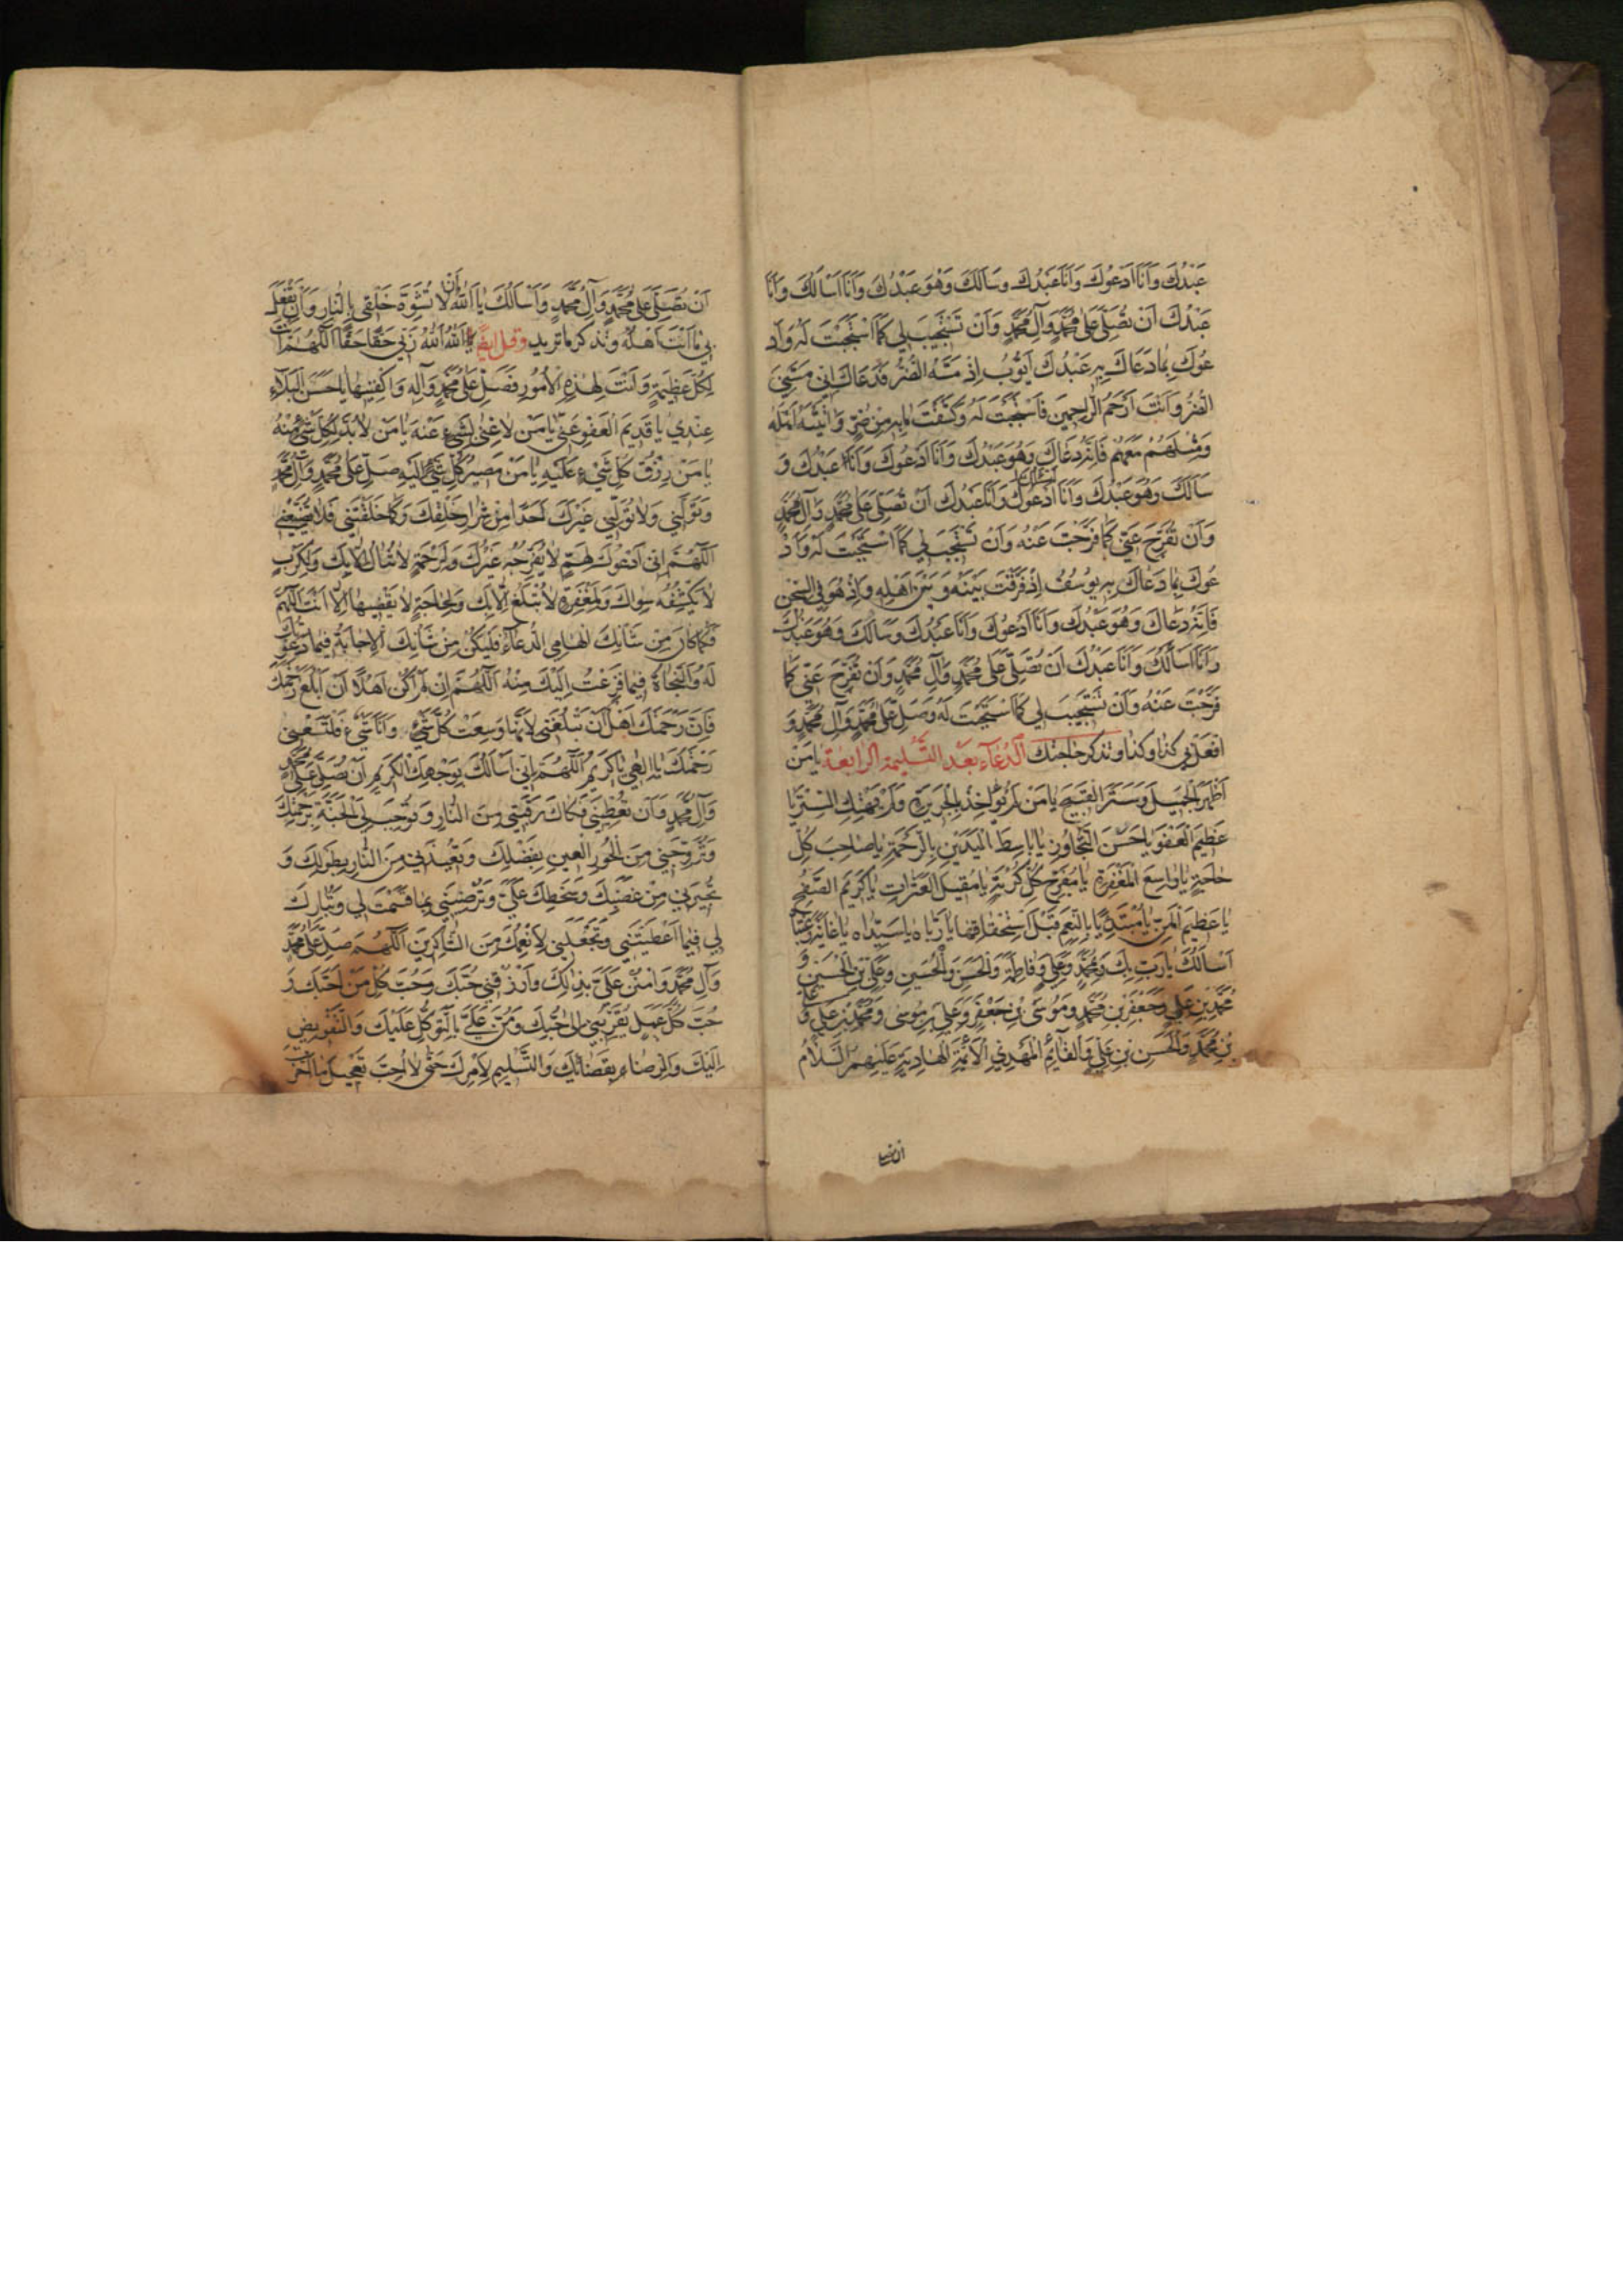 عَبْدُكَ وَاَنَا اَدْعُوكَ وَاَنَا عَبْدُكَ وَسَاَلَكَ وَهُوَ عَبْدُكَ وَاَنَا اَسْاَلُكَ وَاَنَا
عَبْدُكَ اَنْ تُصَلِّيَ عَلى مُحَمَّدٍ وَآلِ مُحَمَّدٍ وَاَنْ تَسْتَجِيبَ لِي كَمَا اسْتَجَبْتَ لَهُ وَاَدْ
عُوكَ بِمَا دَعَاكَ بِهِ عَبْدُكَ اَيُّوبُ اِذْ مَسَّهُ الضُّرُّ فَدَعَاكَ اَنِّي مَسَّنِيَ
الضُّرُّ وَاَنْتَ اَرْحَمُ الرَّاحِمِينَ فَاسْتَجَبْتَ لَهُ وَكَشَفْتَ مَا بِهِ مِنْ ضُرٍّ وَاٰتَيْتَهُ اَهْلَهُ
وَمِثْلَهُمْ مَعَهُمْ فَاِنَّهُ دَعَاكَ وَهُوَ عَبْدُكَ وَاَنَا اَدْعُوكَ وَاَنَا عَبْدُكَ وَ
سَاَلَكَ وَهُوَ عَبْدُكَ وَاَنَا اَدْعُوكَ اَسْئَلُكَ وَاَنَا عَبْدُكَ اَنْ تُصَلِّيَ عَلى مُحَمَّدٍ وَآلِ مُحَمَّدٍ
وَاَنْ تُفَرِّجَ عَنِّي كَمَا فَرَّجْتَ عَنْهُ وَاَنْ تَسْتَجِيبَ لِي كَمَا اسْتَجَبْتَ لَهُ وَاَدْ
عُوكَ بِمَا دَعَاكَ بِهِ يُوسُفُ اِذْ فَرَّقْتَ بَيْنَهُ وَبَيْنَ اَهْلِهِ وَاِذْ هُوَ فِي السِّجْنِ
فَاِنَّهُ دَعَاكَ وَهُوَ عَبْدُكَ وَاَنَا اَدْعُوكَ وَاَنَا عَبْدُكَ وَسَاَلَكَ وَهُوَ عَبْدُكَ
وَاَنَا اَسْاَلُكَ وَاَنَا عَبْدُكَ اَنْ تُصَلِّيَ عَلى مُحَمَّدٍ وَآلِ مُحَمَّدٍ وَاَنْ تُفَرِّجَ عَنِّي كَمَا
فَرَّجْتَ عَنْهُ وَاَنْ تَسْتَجِيبَ لِي كَمَا اسْتَجَبْتَ لَهُ وَصَلِّ عَلى مُحَمَّدٍ وَآلِ مُحَمَّدٍ وَ
افْعَلْ بِي كذا وكذا وتذكر حاجتك الدُّعَاءُ بَعْدَ التَّسْلِيمَةِ الرَّابِعَةِ يَا مَنْ
اَظْهَرَ الْجَمِيلَ وَسَتَرَ الْقَبِيحَ يَا مَنْ لَمْ يُؤَاخِذْ بِالْجَرِيرَةِ وَلَمْ يَهْتِكِ السِّتْرَ يَا
عَظِيمَ الْعَفْوِ يَا حَسَنَ التَّجَاوُزِ يَا بَاسِطَ الْيَدَيْنِ بِالرَّحْمَةِ يَا صَاحِبَ كُلِّ
حَاجَةٍ يَا وَاسِعَ الْمَغْفِرَةِ يَا مُفَرِّجَ كُلِّ كُرْبَةٍ يَا مُقِيلَ الْعَثَرَاتِ يَا كَرِيمَ الصَّفْحِ
يَا عَظِيمَ الْمَنِّ يَا مُبْتَدِئًا بِالنِّعَمِ قَبْلَ اسْتِحْقَاقِهَا يَا رَبَّاهُ يَا سَيِّدَاهُ يَا غَايَةَ رَغْبَتَا
اَسْاَلُكَ يَا رَبِّ بِكَ وَبِمُحَمَّدٍ وَعَلِيٍّ وَفَاطِمَةَ وَالْحَسَنِ وَالْحُسَيْنِ وَعَلِيِّ بْنِ الْحُسَيْنِ وَ
مُحَمَّدِ بْنِ عَلِيٍّ وَجَعْفَرِ بْنِ مُحَمَّدٍ وَمُوسَى بْنِ جَعْفَرٍ وَعَلِيِّ بْنِ مُوسٰى وَمُحَمَّدِ بْنِ عَلِيٍّ وَعَلِيِّ
بْنِ مُحَمَّدٍ وَالْحَسَنِ بْنِ عَلِيٍّ وَالْقَائِمِ الْمَهْدِيِّ الْاَئِمَّةِ الْهَادِيَةِ عَلَيْهِمُ السَّلَامُ
اَنْ تُصَلِّيَ
اَنْ تُصَلِّيَ عَلى مُحَمَّدٍ وَآلِ مُحَمَّدٍ وَاَسْاَلُكَ يَا اَللهُ اَنْ لَا تُشَوِّهَ خَلْقِي بِالنَّارِ وَاَنْ تَفْعَلَ
بِي مَا اَنْتَ اَهْلُهُ وتذكر ما تريد وقل ايضا يَا اَللهُ اَللهُ رَبِّي حَقًّا حَقًّا اَللّٰهُمَّ اَنْتَ
لِكُلِّ عَظِيمَةٍ وَاَنْتَ لِهٰذِهِ الْاُمُورِ فَصَلِّ عَلى مُحَمَّدٍ وَآلِهِ وَاكْفِنِيهَا يَا حَسَنَ الْبَلَاءِ
عِنْدِي يَا قَدِيمَ الْعَفْوِ عَنِّي يَا مَنْ لَا غِنٰى لِشَيْءٍ عَنْهُ يَا مَنْ لَا بُدَّ لِكُلِّ شَيْءٍ مِنْهُ
يَا مَنْ رِزْقُ كُلِّ شَيْءٍ عَلَيْهِ يَا مَنْ مَصِيرُ كُلِّ شَيْءٍ اِلَيْهِ صَلِّ عَلى مُحَمَّدٍ وَآلِ مُحَمَّدٍ
وَتَوَلَّنِي وَلَا تُوَلِّنِي غَيْرَكَ اَحَدًا مِنْ شِرَارِ خَلْقِكَ وَكَمَا خَلَقْتَنِي فَلَا تُضَيِّعْنِي
اَللّٰهُمَّ اِنِّي اَدْعُوكَ لِهَمٍّ لَا يُفَرِّجُهُ غَيْرُكَ وَلِرَحْمَةٍ لَا تُنَالُ اِلَّا بِكَ وَلِكَرْبٍ
لَا يَكْشِفُهُ سِوَاكَ وَلِمَغْفِرَةٍ لَا تُبْلَغُ اِلَّا بِكَ وَلِحَاجَةٍ لَا يَقْضِيهَا اِلَّا اَنْتَ اَللّٰهُمَّ
فَكَمَا كَانَ مِنْ شَاْنِكَ اِلْهَامِي الدُّعَاءَ فَلْيَكُنْ مِنْ شَاْنِكَ الْاِجَابَةُ فِيمَا دَعَوْتُكَ
لَهُ وَالنَّجَاةُ فِيمَا فَزِعْتُ اِلَيْكَ مِنْهُ اَللّٰهُمَّ اِنْ لَمْ اَكُنْ اَهْلًا اَنْ اَبْلُغَ رَحْمَتَكَ
فَاِنَّ رَحْمَتَكَ اَهْلٌ اَنْ تَبْلُغَنِي لِاَنَّهَا وَسِعَتْ كُلَّ شَيْءٍ وَاَنَا شَيْءٌ فَلْتَسَعْنِي
رَحْمَتُكَ يَا اِلٰهِي يَا كَرِيمُ اَللّٰهُمَّ اِنِّي اَسْاَلُكَ بِوَجْهِكَ الْكَرِيمِ اَنْ تُصَلِّيَ عَلى مُحَمَّدٍ
وَآلِ مُحَمَّدٍ وَاَنْ تُعْطِيَنِي فَكَاكَ رَقَبَتِي مِنَ النَّارِ وَتُوجِبَ لِيَ الْجَنَّةَ بِرَحْمَتِكَ
وَتُزَوِّجَنِي مِنَ الْحُورِ الْعِينِ بِفَضْلِكَ وَتُعِيذَنِي مِنَ النَّارِ بِطَوْلِكَ وَ
تُجِيرَنِي مِنْ غَضَبِكَ وَسَخَطِكَ عَلَيَّ وَتُرْضِيَنِي بِمَا قَسَمْتَ لِي وَتُبَارِكَ
لِي فِيمَا اَعْطَيْتَنِي وَتَجْعَلَنِي لِاَنْعُمِكَ مِنَ الشَّاكِرِينَ اَللّٰهُمَّ صَلِّ عَلى مُحَمَّدٍ
وَآلِ مُحَمَّدٍ وَامْنُنْ عَلَيَّ بِذٰلِكَ وَارْزُقْنِي حُبَّكَ وَحُبَّ كُلِّ مَنْ اَحَبَّكَ وَ
حُبَّ كُلِّ عَمَلٍ يُقَرِّبُنِي اِلٰى حُبِّكَ وَمُنَّ عَلَيَّ بِالتَّوَكُّلِ عَلَيْكَ وَالتَّفْوِيضِ
اِلَيْكَ وَالرِّضَاءِ بِقَضَائِكَ وَالتَّسْلِيمِ لِاَمْرِكَ حَتّٰى لَا اُحِبَّ تَعْجِيلَ مَا اَخَّرْتَ